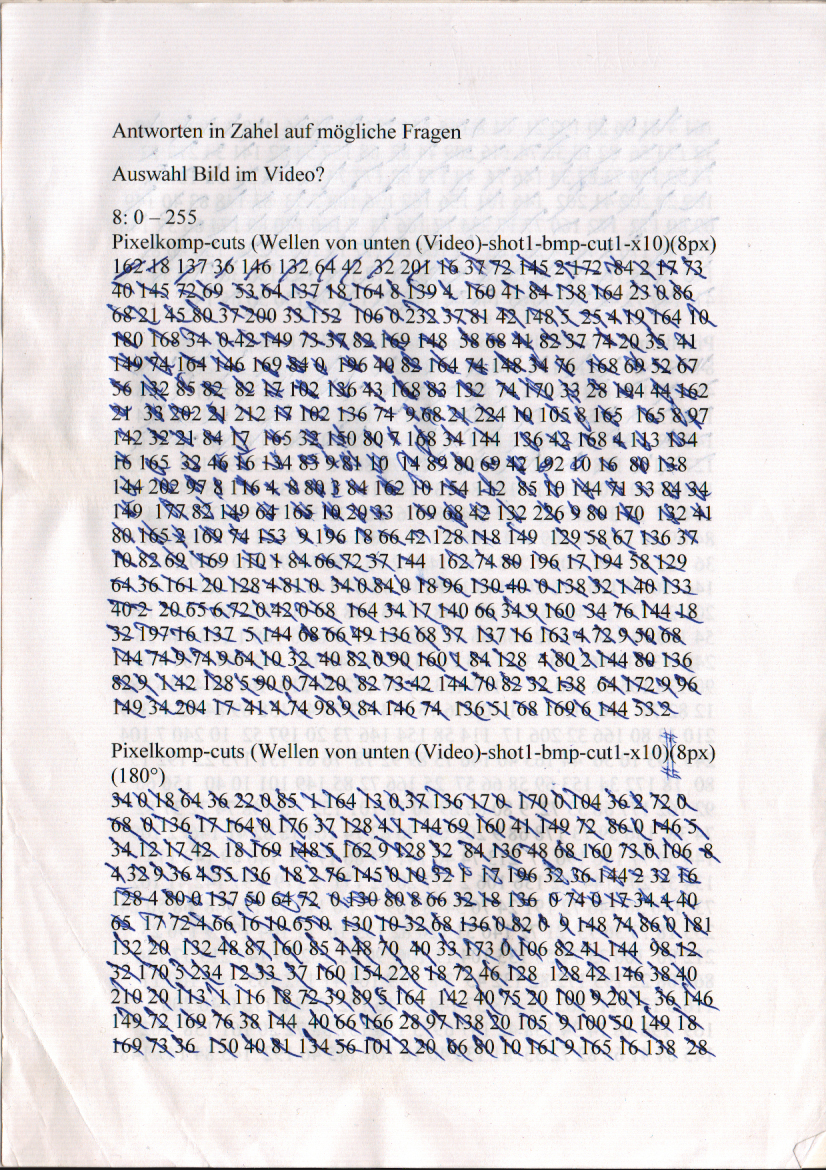 Antworten in Zahel auf mögliche Fragen
Auswahl Bild im Video?
8: 0 – 255
Pixelkomp-cuts (Wellen von unten (Video)-shot1-bmp-cut1-x10)(8px)
162 18 137 36 146 132 64 42 32 201 16 37 72 145 2 172 84 2 17 73
40 145 72 69 53 64 137 18 164 8 139 4 160 41 84 138 164 23 0 86
68 21 45 80 37 200 33 152 106 0 232 37 81 42 148 5 25 4 19 164 10
180 168 34 0 42 149 73 37 82 169 148 38 68 41 82 37 74 20 35 41
149 74 164 146 169 84 0 196 40 82 164 74 148 34 76 168 69 52 67
56 132 85 82 82 17 102 136 43 168 83 132 74 170 33 28 194 44 162
21 33 202 21 212 17 102 136 74 9 68 21 224 10 105 8 165 165 8 97
142 32 21 84 17 165 32 150 80 7 168 34 144 136 42 168 4 113 134
16 165 32 46 16 134 83 9 81 10 14 89 80 69 42 192 10 16 80 138
144 202 97 8 116 4 8 80 3 84 162 10 154 112 85 10 144 71 33 84 34
149 177 82 149 64 165 10 20 33 169 68 42 132 226 9 80 170 132 41
80 165 2 169 74 153 9 196 18 66 42 128 118 149 129 58 67 136 37
10 82 69 169 110 1 84 66 72 37 144 162 74 80 196 17 194 58 129
64 36 161 20 128 4 81 0 34 0 84 0 18 96 130 40 0 138 32 1 40 133
40 2 20 65 6 72 0 42 0 68 164 34 17 140 66 34 9 160 34 76 144 18
32 197 16 137 5 144 68 66 49 136 68 37 137 16 163 4 72 9 50 68
144 74 9 74 9 64 10 32 40 82 0 90 160 1 84 128 4 80 2 144 80 136
82 9 1 42 128 5 90 0 74 20 82 73 42 144 70 82 32 138 64 172 9 96
149 34 204 17 41 4 74 98 9 84 146 74 136 51 68 169 6 144 53 2
Pixelkomp-cuts (Wellen von unten (Video)-shot1-bmp-cut1-x10)(8px)
(180°)
34 0 18 64 36 22 0 85 1 164 13 0 37 136 17 0 170 0 104 36 2 72 0
68 0 136 17 164 0 176 37 128 4 1 144 69 160 41 149 72 86 0 146 5
34 12 17 42 18 169 148 5 162 9 128 32 84 136 48 68 160 73 0 106 8
4 32 9 36 4 35 136 18 2 76 145 0 10 52 1 17 196 32 36 144 2 32 16
128 4 80 0 137 50 64 72 0 130 80 8 66 32 18 136 0 74 0 17 34 4 40
65 17 72 4 66 16 10 65 0 130 10 32 68 136 0 82 0 9 148 74 86 0 181
132 20 132 48 87 160 85 4 48 70 40 33 173 0 106 82 41 144 98 12
32 170 5 234 12 33 37 160 154 228 18 72 46 128 128 42 146 38 40
210 20 113 1 116 18 72 39 89 5 164 142 40 75 20 100 9 20 1 36 146
149 72 169 76 38 144 40 66 166 28 97 138 20 105 9 100 50 149 18
169 73 36 150 40 81 134 56 101 2 20 66 80 10 161 9 165 16 138 28